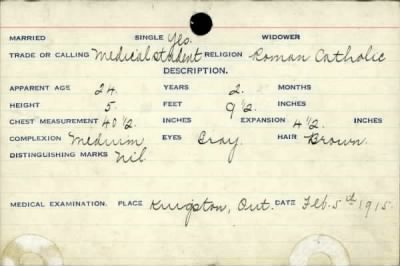 MARRIED SINGLE Yes. WIDOWER
TRADE OR CALLING Medical student RELIGION Roman Catholic
DESCRIPTION.
APPARENT AGE 24 YEARS 2. MONTHS
HEIGHT 5 FEET 9 1/2. INCHES
CHEST MEASUREMENT 40 1/2 INCHES EXPANSION 4 1/2. INCHES
COMPLEXION Medium EYES Gray. HAIR Brown.
DISTINGUISHING MARKS Nil.
MEDICAL EXAMINATION. PLACE Kingston, Ont. DATE Feb. 5th 1915.